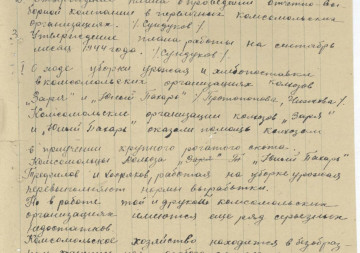 борной кампании в первичных комсомольских
организациях. /Сундуков/.
3. Утверждение плана работы на сентябрь
месяц 1944 года. /Сундуков/.
I О ходе уборки урожая и хлебопоставке
в комсомольских организациях колхозов
"Заря" и "Юный Пахарь" /Протопопова,
Комсомольские организации колхозов "Заря"
и "Юный Пахарь" оказали помощь колхозам
в крупного рогатого скота.
Комсомольцы колхоза "Заря" и "Юный Пахарь"
и работая на уборке урожая
перевыполняют нормы выработки.
Но в работе той и другой комсомольских
организациях имеются еще ряд серьезных
недостатков.
Комсомольское хозяйство находится в безобраз-